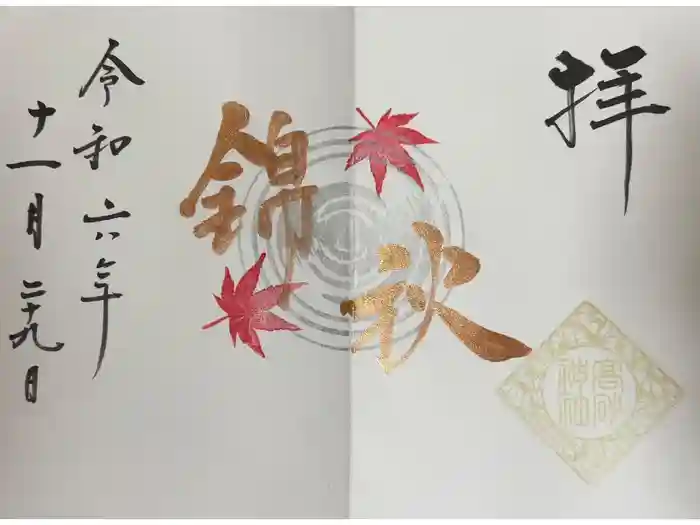 拝
錦秋
高砂
神社
令和六年
十一月二十九日